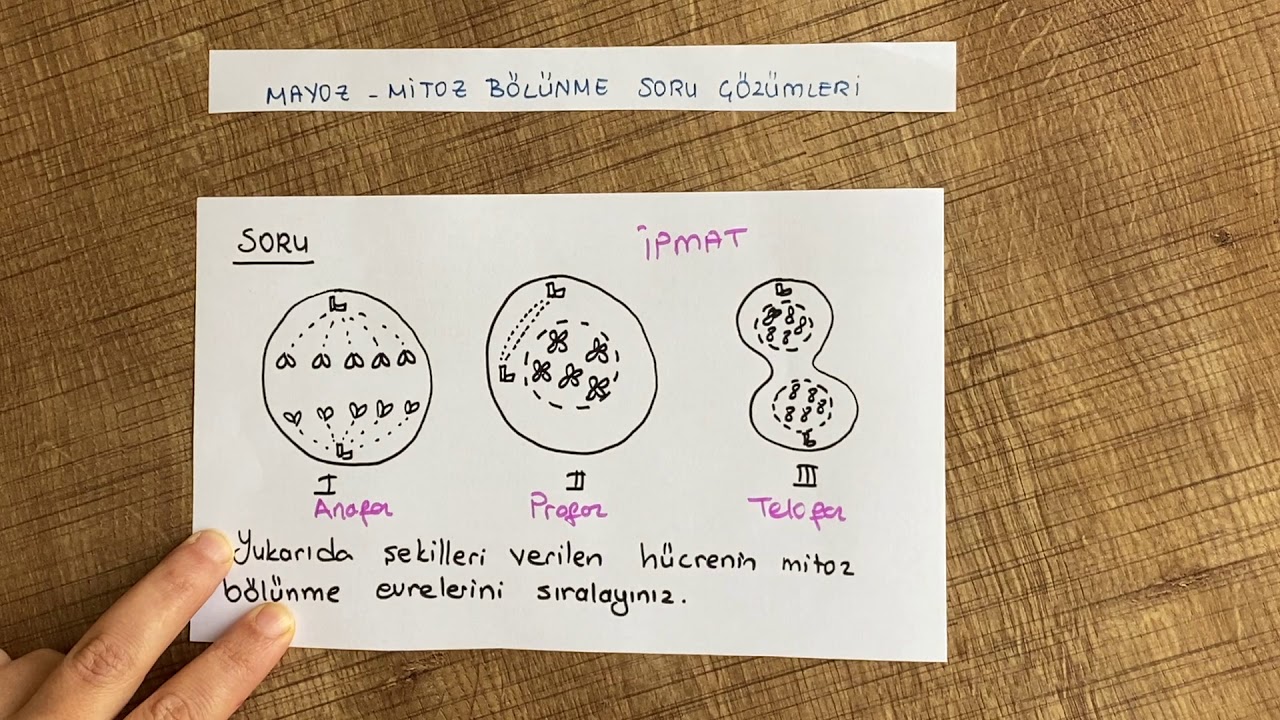 MAYOZ - MİTOZ BÖLÜNME SORU ÇÖZÜMLERİ
SORU
İPMAT
I II III
Anafaz Profaz Telofaz
Yukarıda şekilleri verilen hücrenin mitoz
bölünme evrelerini sıralayınız.